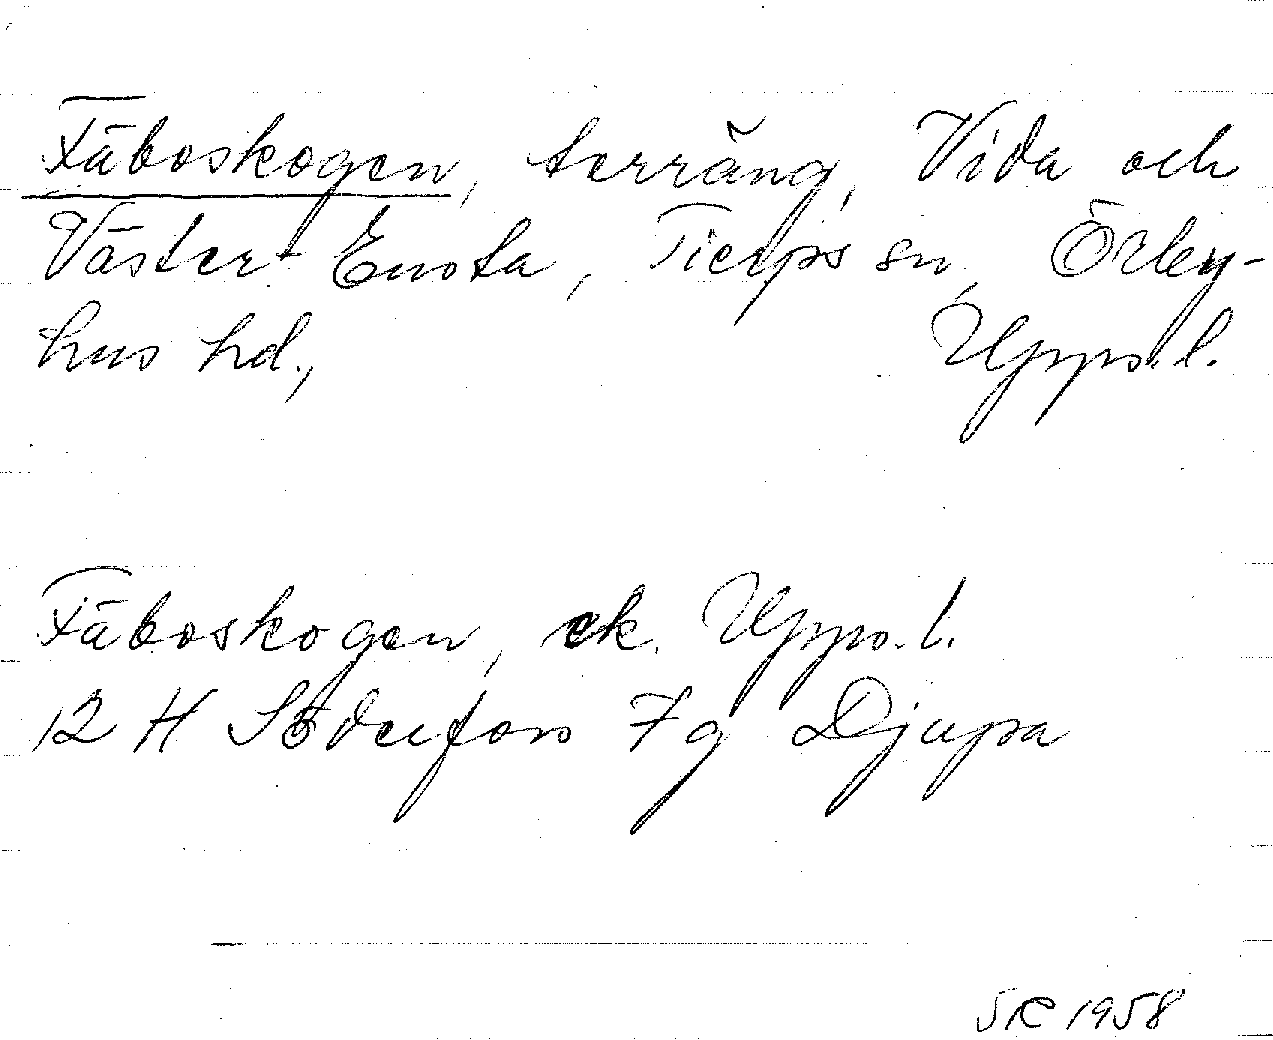 Fäboskogen, terräng, Vida och
Väster Ensta, Tierps sn, Örby-
hus hd., Upps. l.
Fäboskogen, ek. Upps. l.
12 H Söderfors 7 g Djupa
SR 1958